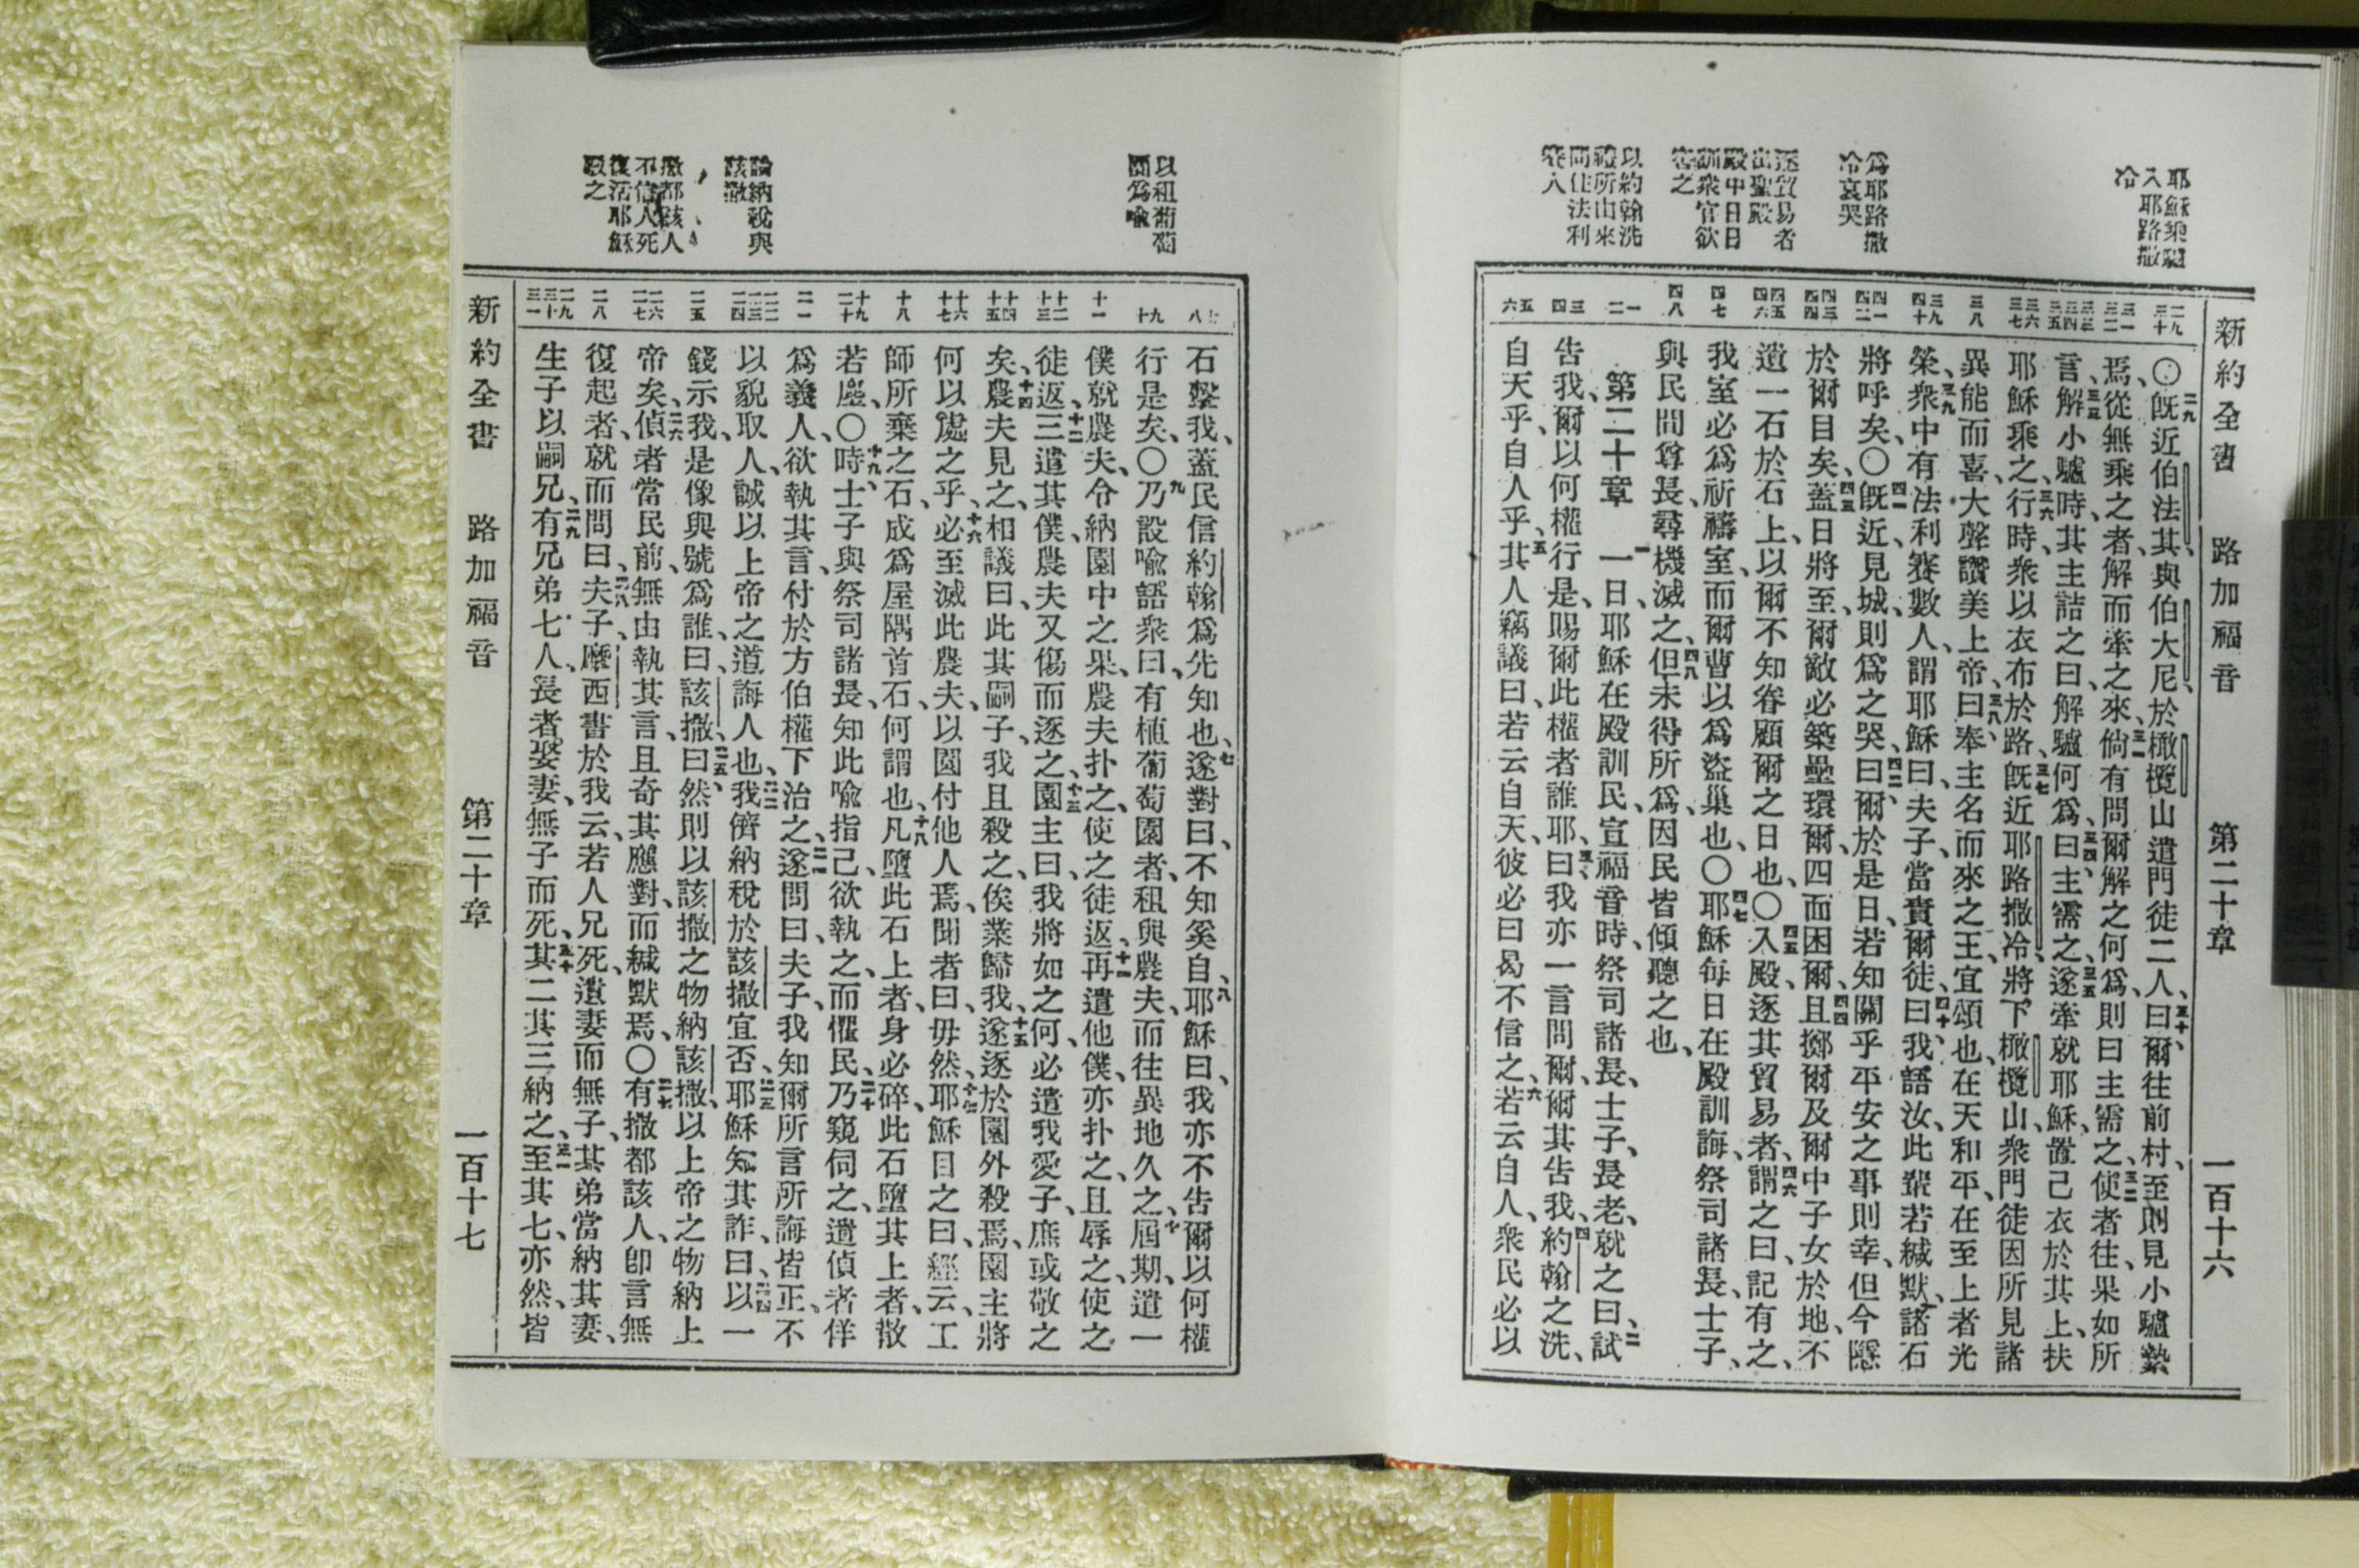 新約全書 路加福音 第二十章 一百十六
耶穌乘驢
入耶路撒
冷
爲耶路撒
冷哀哭
逐貿易者
出聖殿
殿中日日
訓衆官欲
害之
以約翰洗
禮所由來
問住法利
賽人
二九 三十 三一 三二 三三 三四 三五 三六 三七 三八 三九 四十 四一 四二 四三 四四 四五 四六 四七 四八 一 二 三 四 五 六
〇二九既近伯法其、與伯大尼、於橄欖山遣門徒二人、三十曰、爾往前村、至則見小驢縶
焉、從無乘之者、解而牽之來、三一倘有問爾解之何爲、則曰主需之、三二使者往、果如所
言、三三解小驢時、其主詰之曰、解驢何爲、三四曰、主需之、三五遂牽就耶穌、置己衣於其上、扶
耶穌乘之、三六行時、衆以衣布於路、三七既近耶路撒冷、將下橄欖山、衆門徒因所見諸
異能而喜、大聲讚美上帝、三八曰、奉主名而來之王、宜頌也、在天和平、在至上者光
榮、三九衆中有法利賽數人、謂耶穌曰、夫子、當責爾徒、四十曰、我語汝、此輩若緘默、諸石
將呼矣、〇四一既近、見城、則爲之哭、四二曰、爾於是日、若知關乎平安之事則幸、但今隱
於爾目矣、四三蓋日將至、爾敵必築壘環爾、四面困爾、四四且擲爾及爾中子女於地、不
遺一石於石上、以爾不知眷顧爾之日也、〇四五入殿、逐其貿易者、四六謂之曰、記有之、
我室必爲祈禱室、而爾曹以爲盜巢也、〇四七耶穌每日在殿訓誨、祭司諸長、士子、
與民間尊長、尋機滅之、四八但未得所爲、因民皆傾聽之也、
第二十章 一一日、耶穌在殿訓民、宣福音時、祭司諸長、士子、長老、就之曰、二試
告我、爾以何權行是、賜爾此權者誰耶、三曰、我亦一言問爾、爾其告我、四約翰之洗、
自天乎、自人乎、五其人竊議曰、若云自天、彼必曰曷不信之、六若云自人、衆民必以
以租葡萄
園爲喻
論納稅與
該撒
撒都該人
不信人死
復活耶穌
駁之
七 八 九 十 十一 十二 十三 十四 十五 十六 十七 十八 十九 二十 二一 二二 二三 二四 二五 二六 二七 二八 二九 三十 三一
石擊我、蓋民信約翰爲先知也、七遂對曰、不知奚自、八耶穌曰、我亦不告爾以何權
行是矣、〇九乃設喻語衆曰、有植葡萄園者、租與農夫、而往異地久之、十屆期、遣一
僕就農夫、令納園中之果、農夫扑之、使之徒返、十一再遣他僕、亦扑之、且辱之、使之
徒返、十二三遣其僕、農夫又傷而逐之、十三園主曰、我將如之何、必遣我愛子、庶或敬之
矣、十四農夫見之、相議曰、此其嗣子、我且殺之、俟業歸我、十五遂逐於園外殺焉、園主將
何以處之乎、十六必至滅此農夫、以園付他人焉、聞者曰、毋然、十七耶穌目之曰、經云、工
師所棄之石、成爲屋隅首石、何謂也、十八凡墮此石上者、身必碎、此石墮其上者、散
若塵、〇十九時、士子與祭司諸長、知此喻指己、欲執之、而懼民、二十乃窺伺之、遣偵者佯
爲義人、欲執其言、付於方伯權下治之、二一遂問曰、夫子、我知爾所言所誨皆正、不
以貌取人、誠以上帝之道誨人也、二二我儕納稅於該撒宜否、二三耶穌知其詐、曰、二四以一
錢示我、是像與號爲誰、曰、該撒、二五曰、然則以該撒之物納該撒、以上帝之物納上
帝矣、二六偵者當民前、無由執其言、且奇其應對、而緘默焉、〇二七有撒都該人、卽言無
復起者、就而問曰、二八夫子、摩西書於我云、若人兄死、遺妻而無子、其弟當納其妻、
生子以嗣兄、二九有兄弟七人、長者娶妻、無子而死、三十其二其三納之、三一至其七、亦然、皆
新約全書 路加福音 第二十章 一百十七